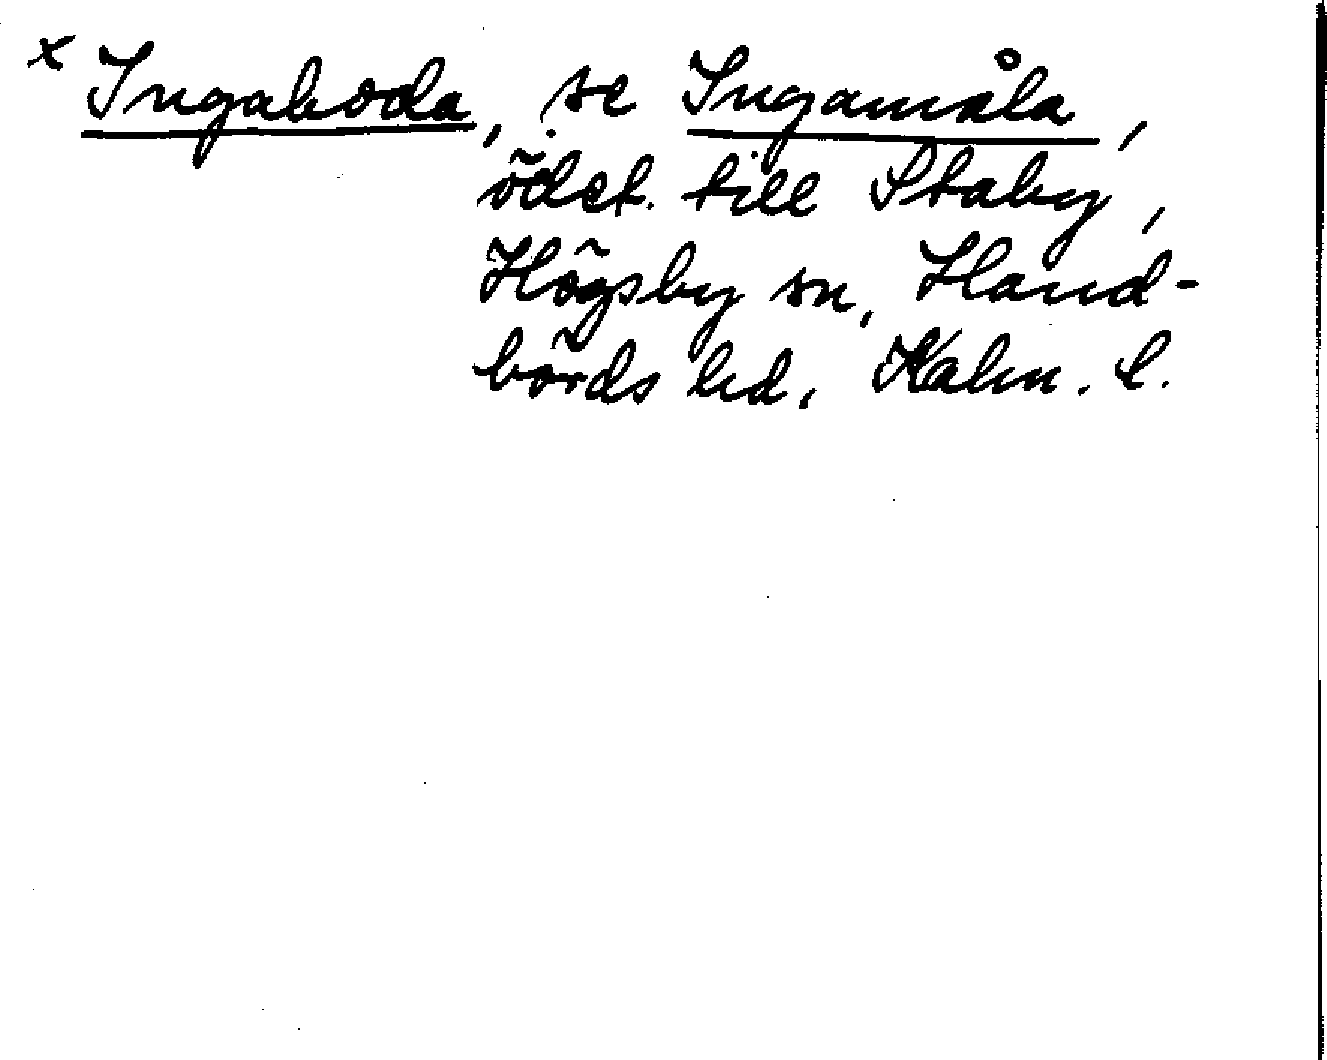 x Ingaboda, se Ingamåla,
ödet. till Staby,
Högsby sn, Hand-
börds hd, Kalm. l.